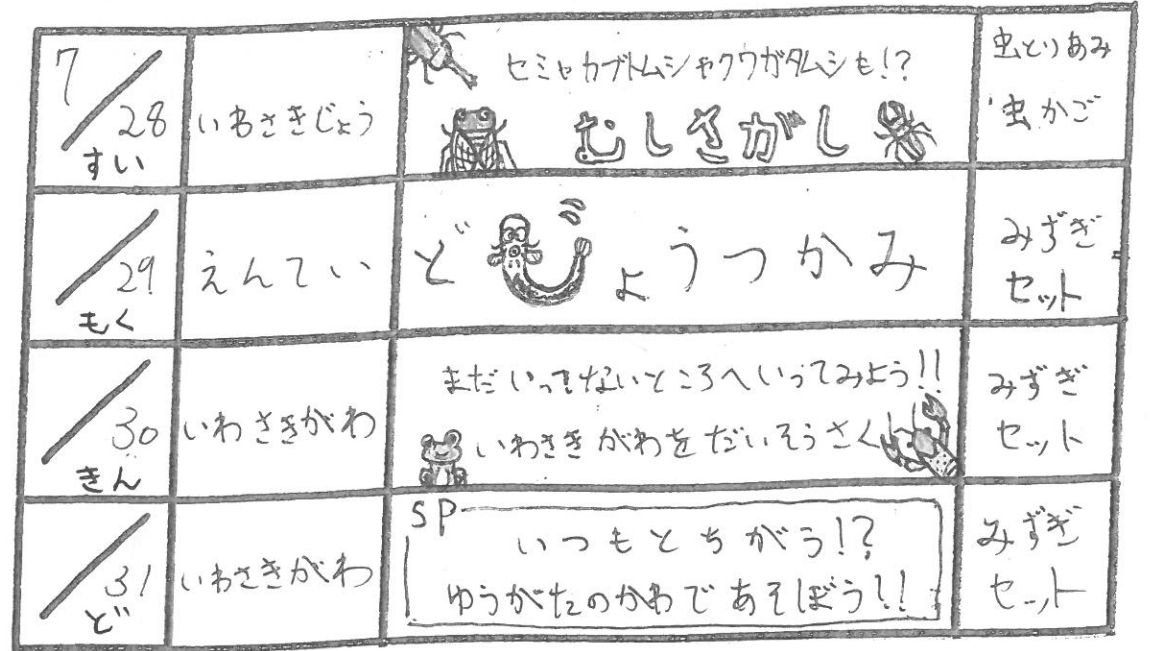 7/28
すい
いわさきじょう
セミやカブトムシやクワガタムシも!?
むしさがし
虫とりあみ
虫かご
/29
もく
えんてい
どじょうつかみ
みずぎ
セット
/30
きん
いわさきがわ
まだいってないところへいってみよう!!
いわさきがわをだいそうさく
みずぎ
セット
/31
ど
いわさきがわ
SP
いつもとちがう!?
ゆうがたのかわであそぼう!!
みずぎ
セット